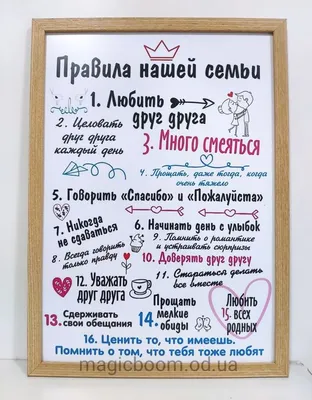 Правила нашей семьи
1. Любить
друг друга
2. Целовать
друг друга
каждый день
3. Много смеяться
4. Прощать, даже тогда, когда
очень тяжело
5. Говорить «Спасибо» и «Пожалуйста»
6. Начинать день с улыбок
7. Никогда
не сдаваться
8. Всегда говорить
только правду
9. Помнить о романтике
и устраивать сюрпризы
10. Доверять друг другу
11. Стараться делать
все вместе
12. Уважать
друг друга
13. Сдерживать
свои обещания
14. Прощать
мелкие
обиды
15. Любить
всех
родных
16. Ценить то, что имеешь.
Помнить о том, что тебя тоже любят
magicboom.od.ua